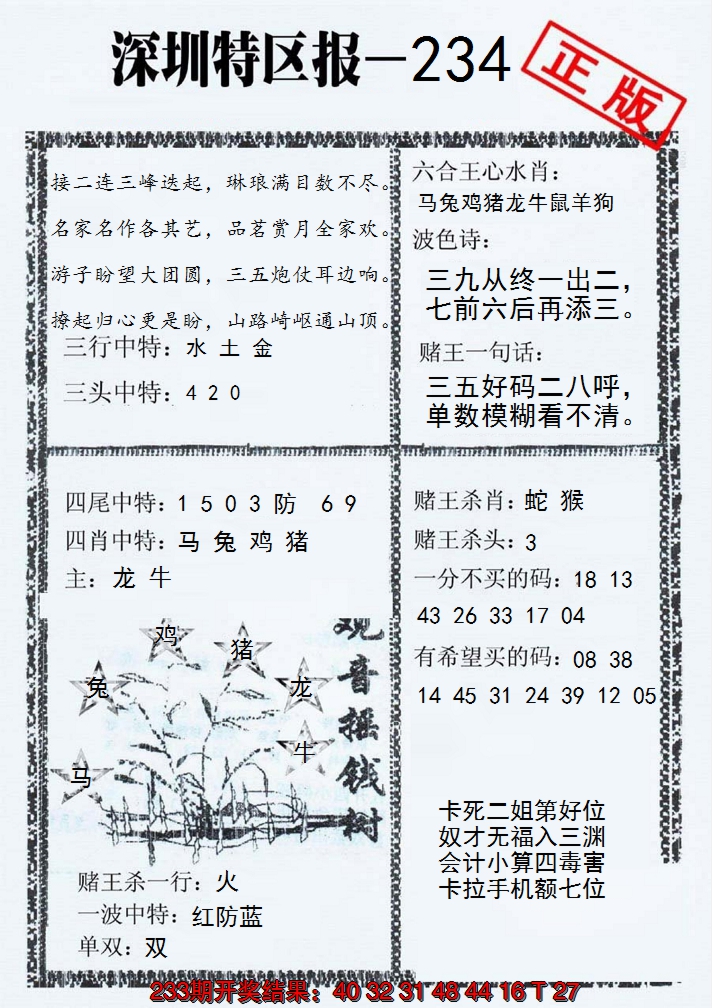 深圳特区报—234
正版
接二连三峰迭起，琳琅满目数不尽。
名家名作各其艺，品茗赏月全家欢。
游子盼望大团圆，三五炮仗耳边响。
撩起归心更是盼，山路崎岖通山顶。
三行中特：水 土 金
三头中特：4 2 0
六合王心水肖：
马兔鸡猪龙牛鼠羊狗
波色诗：
三九从终一出二，
七前六后再添三。
赌王一句话：
三五好码二八呼，
单数模糊看不清。
四尾中特：1 5 0 3 防 6 9
四肖中特：马 兔 鸡 猪
主：龙 牛
鸡
猪
兔
龙
牛
马
观音摇钱树
赌王杀一行：火
一波中特：红防蓝
单双：双
赌王杀肖：蛇 猴
赌王杀头：3
一分不买的码：18 13
43 26 33 17 04
有希望买的码：08 38
14 45 31 24 39 12 05
卡死二姐第好位
奴才无福入三渊
会计小算四毒害
卡拉手机额七位
233期开奖结果：40 32 31 48 44 16 T 27